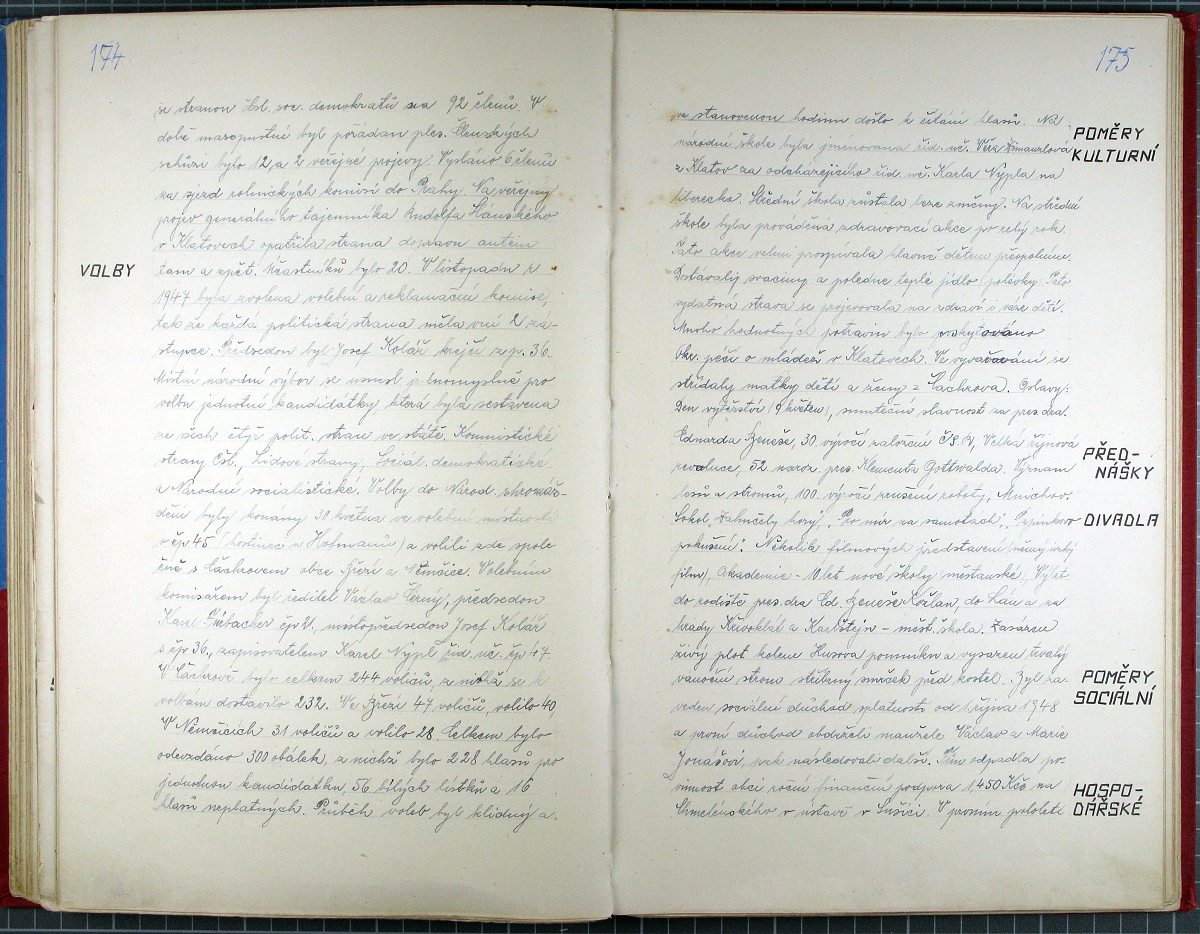 174
se stranou čsl. soc. demokratů na 92 členů. V
době masopustní byl pořádán ples. Členských
schůzí bylo 12 a 2 veřejné projevy. Vysláno 6 členů
na sjezd rolnických komisí do Prahy. Na veřejný
projev generálního tajemníka Rudolfa Slánského
v Klatovech opatřila strana dopravu autem
VOLBY
tam a zpět. Účastníků bylo 20. V listopadu r.
1947 byla zvolena volební a reklamační komise,
tak že každá politická strana měla v ní 2 zá-
stupce. Předsedou byl Josef Kolář krejčí čp. 36.
Místní národní výbor se usnesl jednomyslně pro
volbu jednotné kandidátky, která byla sestavena
ze všech čtyř polit. stran ve státě. Komunistické
strany Čsl., Lidové strany, Sociál. demokratické
a Národní socialistické. Volby do Národ. shromáž-
dění byly konány 30 května ve volební místnosti
v čp 45 (hostinec u Hofmanů) a volili zde spole-
čně s Čachrovem obce Březí a Němčice. Volebním
komisařem byl ředitel Václav Černý, předsedou
Karel čp 21., místopředsedou Josef Kolář
z čp 36., zapisovatelem Karel Nypl říd. uč. čp 47.
V Čachrově bylo celkem 244 voličů, z nichž se k
volbám dostavilo 232. Ve Březí 47 voličů, volilo 40,
V Němčicích 31 voličů a volilo 28. Celkem bylo
odevzdáno 300 obálek, z nichž bylo 228 hlasů pro
jednotnou kandidátku, 56 bílých lístků a 16
hlasů neplatných. Průběh voleb byl klidný a.
175
ve stanovenou hodinu došlo k čítání hlasů. Na
POMĚRY
KULTURNÍ
národní škole byla jmenována říd. uč. Věra
z Klatov za odcházejícího říd. uč. Karla Nypla na
Liberecko. Střední škola zůstala beze změny. Na střední
škole byla prováděna zdravovací akce po celý rok.
Tato akce velmi prospívala hlavně dětem přespolním.
Dostávaly svačiny a poledne teplé jídlo (polévky). Tato
vydatná strava se projevovala na zdraví i váze dětí.
Mnoho hodnotných potravin bylo poskytováno
Okr. péčí o mládež v Klatovech. Ve vyvařování se
střídaly matky dětí a ženy z Čachrova. Oslavy:
Den vítězství (9 květen), smuteční slavnost za pres. dra.
Edvarda Beneše, 30 výročí založení ČSR, Velká říjnová
PŘED-
NÁŠKY
revoluce, 52. naroz. pres. Klementa Gottwalda. Význam
lesů a stromů, 100. výročí zrušení roboty, Mnichov.
DIVADLA
Sokol „Zahučely hory", „Pro mír na samotách", „Pepinkovo
pokušení". Několik filmových představení (němý úzký
film), Akademie - 10 let nové školy (měšťanské), Výlet
do rodiště pres. dra Ed. Beneše Kožlan, do Lán a na
hrady Křivoklát a Karlštejn - měšť. škola. Zasázen
živý plot kolem Husova pomníku a vysazen trvalý
vánoční strom stříbrný smrček před kostel. Byl za-
POMĚRY
SOCIÁLNÍ
veden sociální důchod platností od 1 října 1948
a první důchod obdrželi manželé Václav a Marie
Jonášovi, pak následovali další. Tím odpadla po-
HOSPO-
DÁŘSKÉ
vinnost obci roční finanční podpora 1,450 Kčs na
Chmelenského v ústavě v Sušici. V prvním pololetí